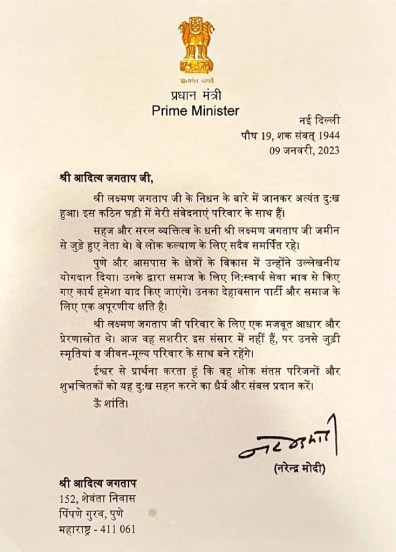 सत्यमेव जयते
प्रधान मंत्री
Prime Minister
नई दिल्ली
पौष 19, शक संवत् 1944
09 जनवरी, 2023
श्री आदित्य जगताप जी,
श्री लक्ष्मण जगताप जी के निधन के बारे में जानकर अत्यंत दुःख
हुआ। इस कठिन घड़ी में मेरी संवेदनाएं परिवार के साथ हैं।
सहज और सरल व्यक्तित्व के धनी श्री लक्ष्मण जगताप जी जमीन
से जुड़े हुए नेता थे। वे लोक कल्याण के लिए सदैव समर्पित रहे।
पुणे और आसपास के क्षेत्रों के विकास में उन्होंने उल्लेखनीय
योगदान दिया। उनके द्वारा समाज के लिए नि:स्वार्थ सेवा भाव से किए
गए कार्य हमेशा याद किए जाएंगे। उनका देहावसान पार्टी और समाज के
लिए एक अपूरणीय क्षति है।
श्री लक्ष्मण जगताप जी परिवार के लिए एक मजबूत आधार और
प्रेरणास्रोत थे। आज वह सशरीर इस संसार में नहीं हैं, पर उनसे जुड़ी
स्मृतियां व जीवन-मूल्य परिवार के साथ बने रहेंगे।
ईश्वर से प्रार्थना करता हूं कि वह शोक संतप्त परिजनों और
शुभचिंतकों को यह दुःख सहन करने का धैर्य और संबल प्रदान करें।
ऊँ शांति।
नरेन्द्र मोदी
(नरेन्द्र मोदी)
श्री आदित्य जगताप
152, शेवंता निवास
पिंपणे गुरव, पुणे
महाराष्ट्र - 411 061